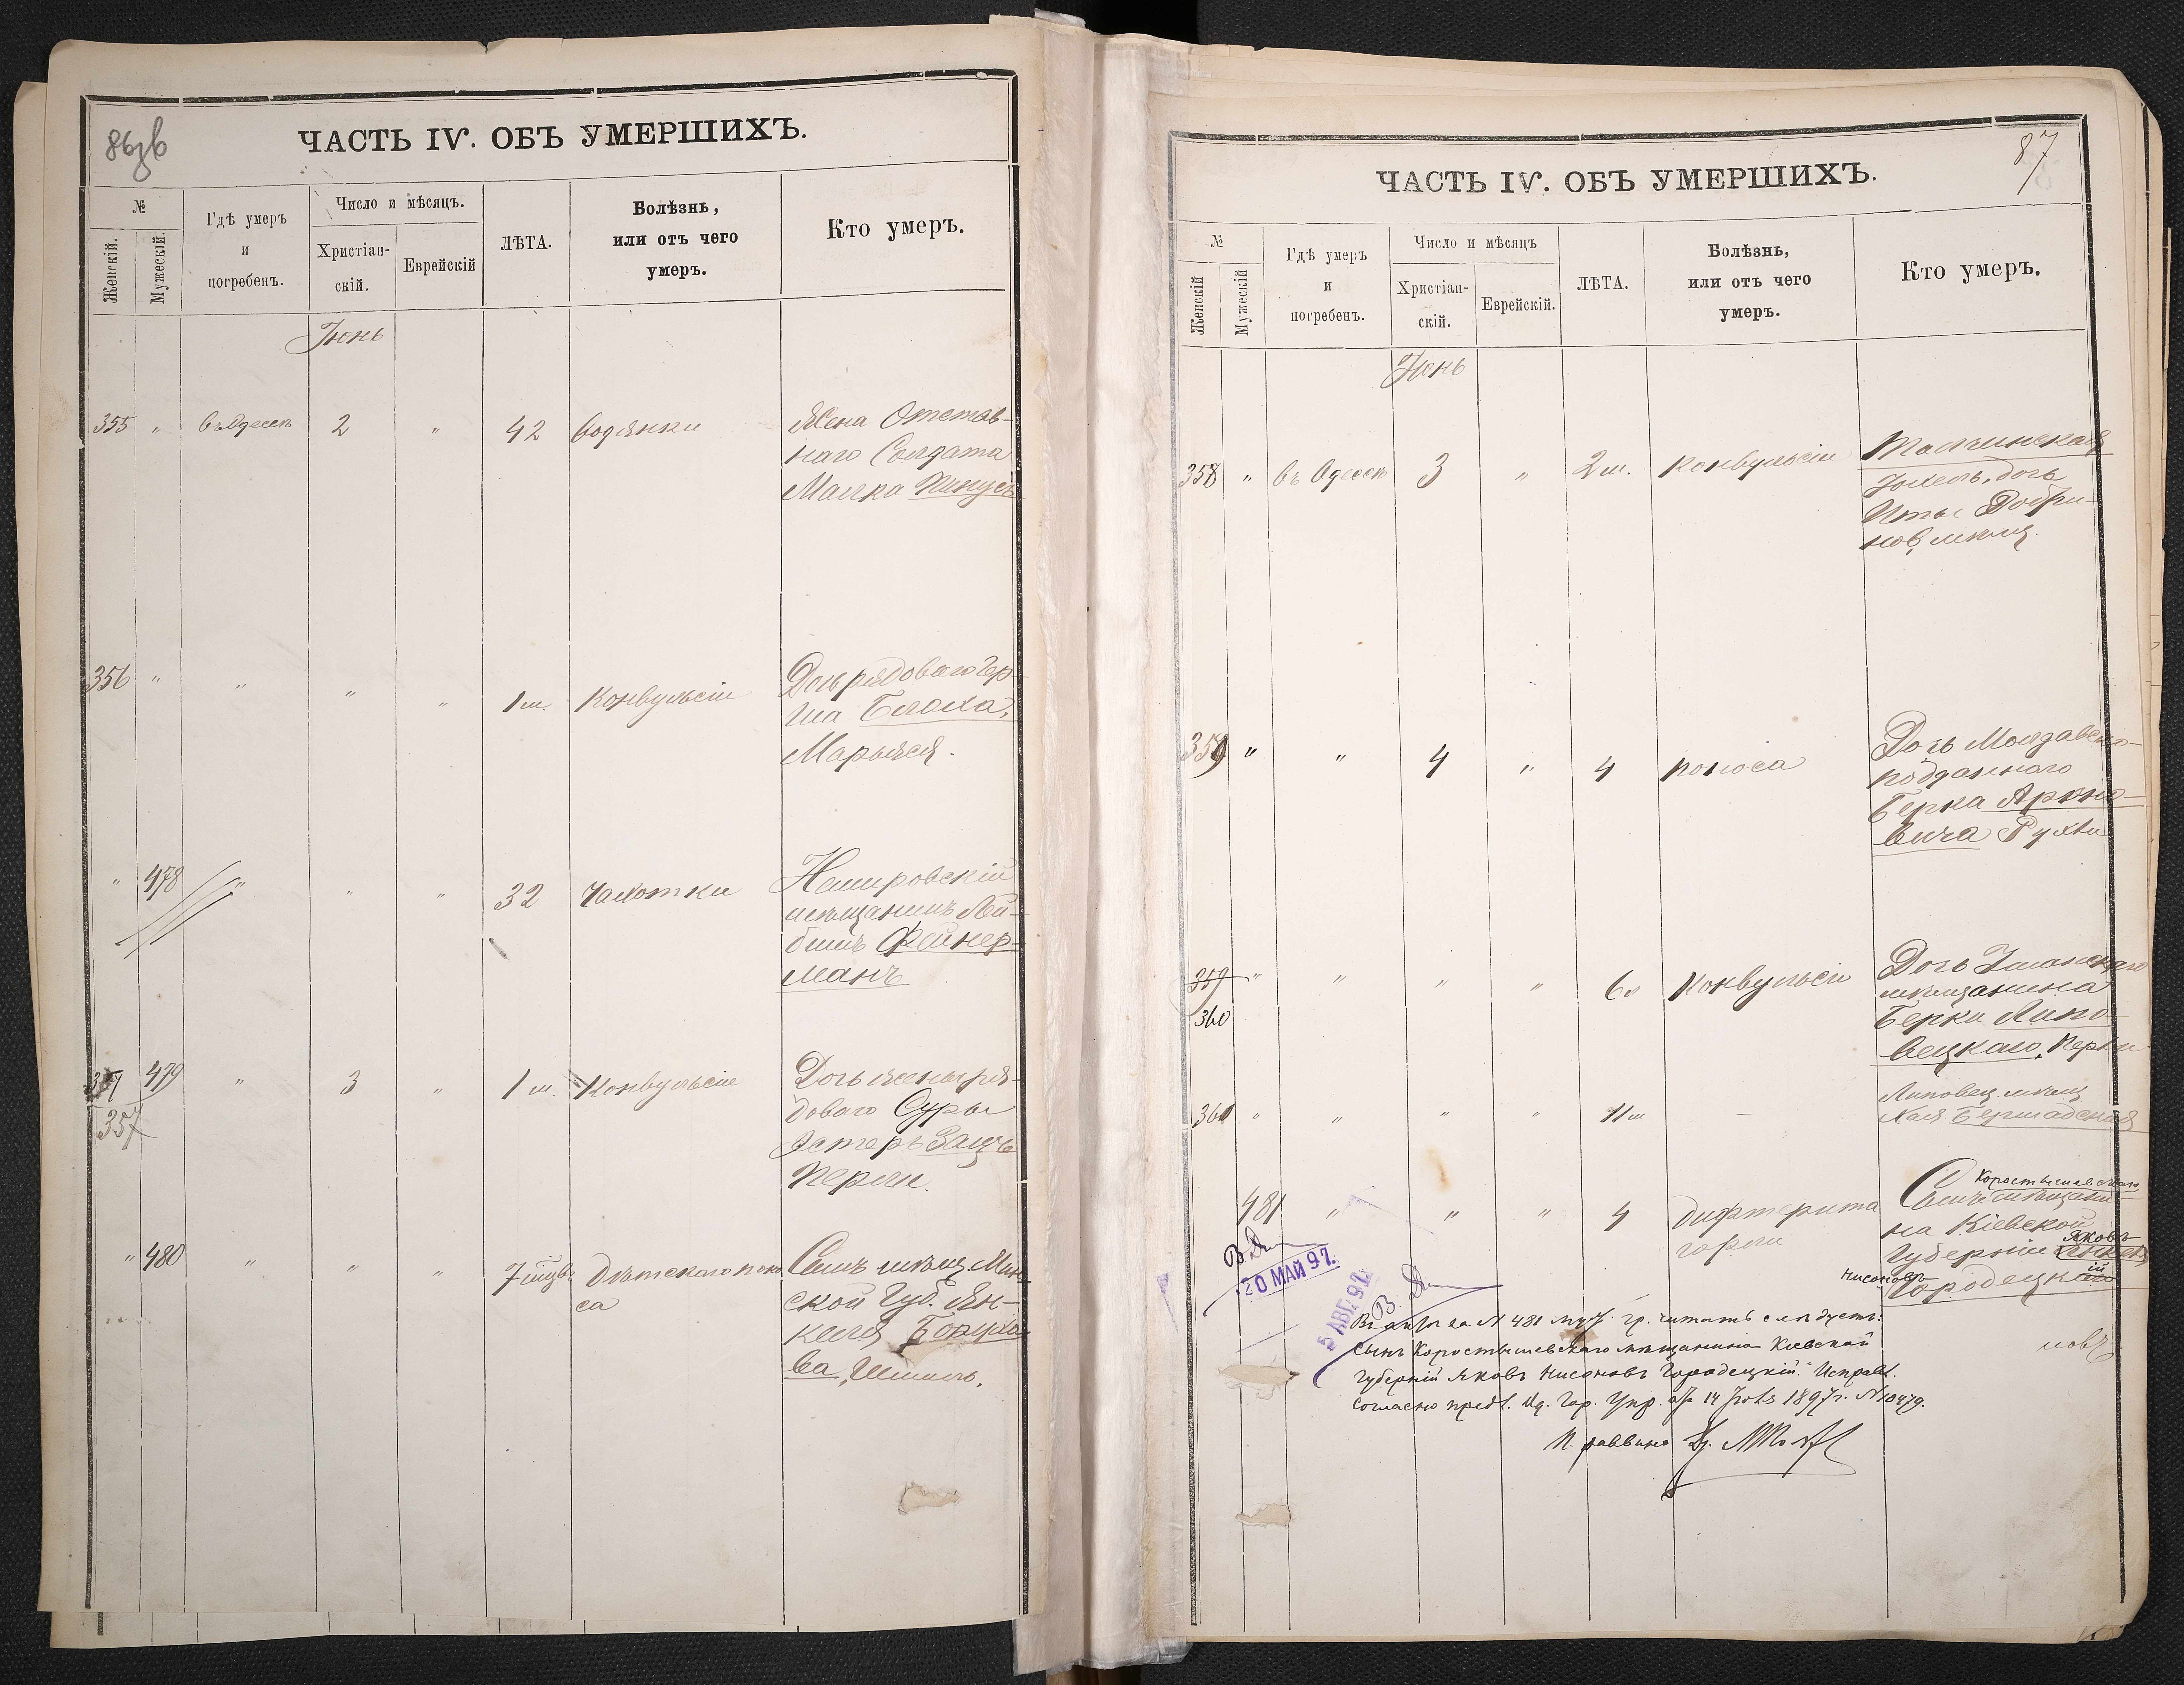 86зв
ЧАСТЬ IV. ОБЪ УМЕРШИХЪ.
№
Женскій.
Мужескій.
Гдѣ умеръ
и
погребенъ.
Число и мѣсяцъ.
Христіан-
скій.
Еврейскій
ЛѢТА.
Болѣзнь,
или отъ чего
умеръ.
Кто умеръ.
Іюнь
355 " въ Одессѣ 2 " 42 водянки
Жена Отстав-
наго Солдата
Малка Пинусъ
356 " " " " 1 м. Конвульсіи
Дочь рядоваго Гер-
ша Блоха,
Марьяся.
" 478 " " " 32 Чахотки
Немировскій
мѣщанинъ Лей-
бишъ Фейнер-
манъ
479 " 3 " 1 м. Конвульсіи
357
Дочь жены ря-
доваго Суры
Эстеръ Зацъ
Перли.
" 480 " " " 7 мѣсц. Дѣтскаго поно
са
Сынъ мѣщ. Мин-
ской Губ. Ян-
келя Борухо
ва,
87
ЧАСТЬ IV. ОБЪ УМЕРШИХЪ.
№
Женскій
Мужескій
Гдѣ умеръ
и
погребенъ.
Число и мѣсяцъ
Христіан-
скій.
Еврейскій.
ЛѢТА.
Болѣзнь,
или отъ чего
умеръ.
Кто умеръ.
Іюнь
358 " въ Одессѣ 3 " 2 м. Конвульсіи
Талчинская
дочь
Иты Добри-
нов. мѣщ.
359 " " 4 " 4 поноса
Дочь Молдавско-
подданнаго
Берка Ароно-
вича Рухли
359 " " " " 6 Конвульсіи
360
Дочь Уманскаго
мѣщанина
Берки Липо-
вецкаго, Перли
361 " " " " 11 м —
Липовец. мѣщ
Хая Бершадская
481 " " " 4 дифтерита
горла
Коростышевскаго
Сынъ мѣщани-
на Кіевской
Губерніи Яковъ
Нисоновъ Городецкій
В.
20 МАЙ 97.
5 АВГ. 97.
В.
Въ актѣ за № 481 муж. гр. читать слѣдуетъ:
Сынъ Коростышевскаго мѣщанина Кіевской
Губерніи Яковъ Нисоновъ Городецкій." Исправл.
Согласно предл. Од. Гор. Упр. отъ 14 1897 г. № 10479.
П. раввина Д.
новъ